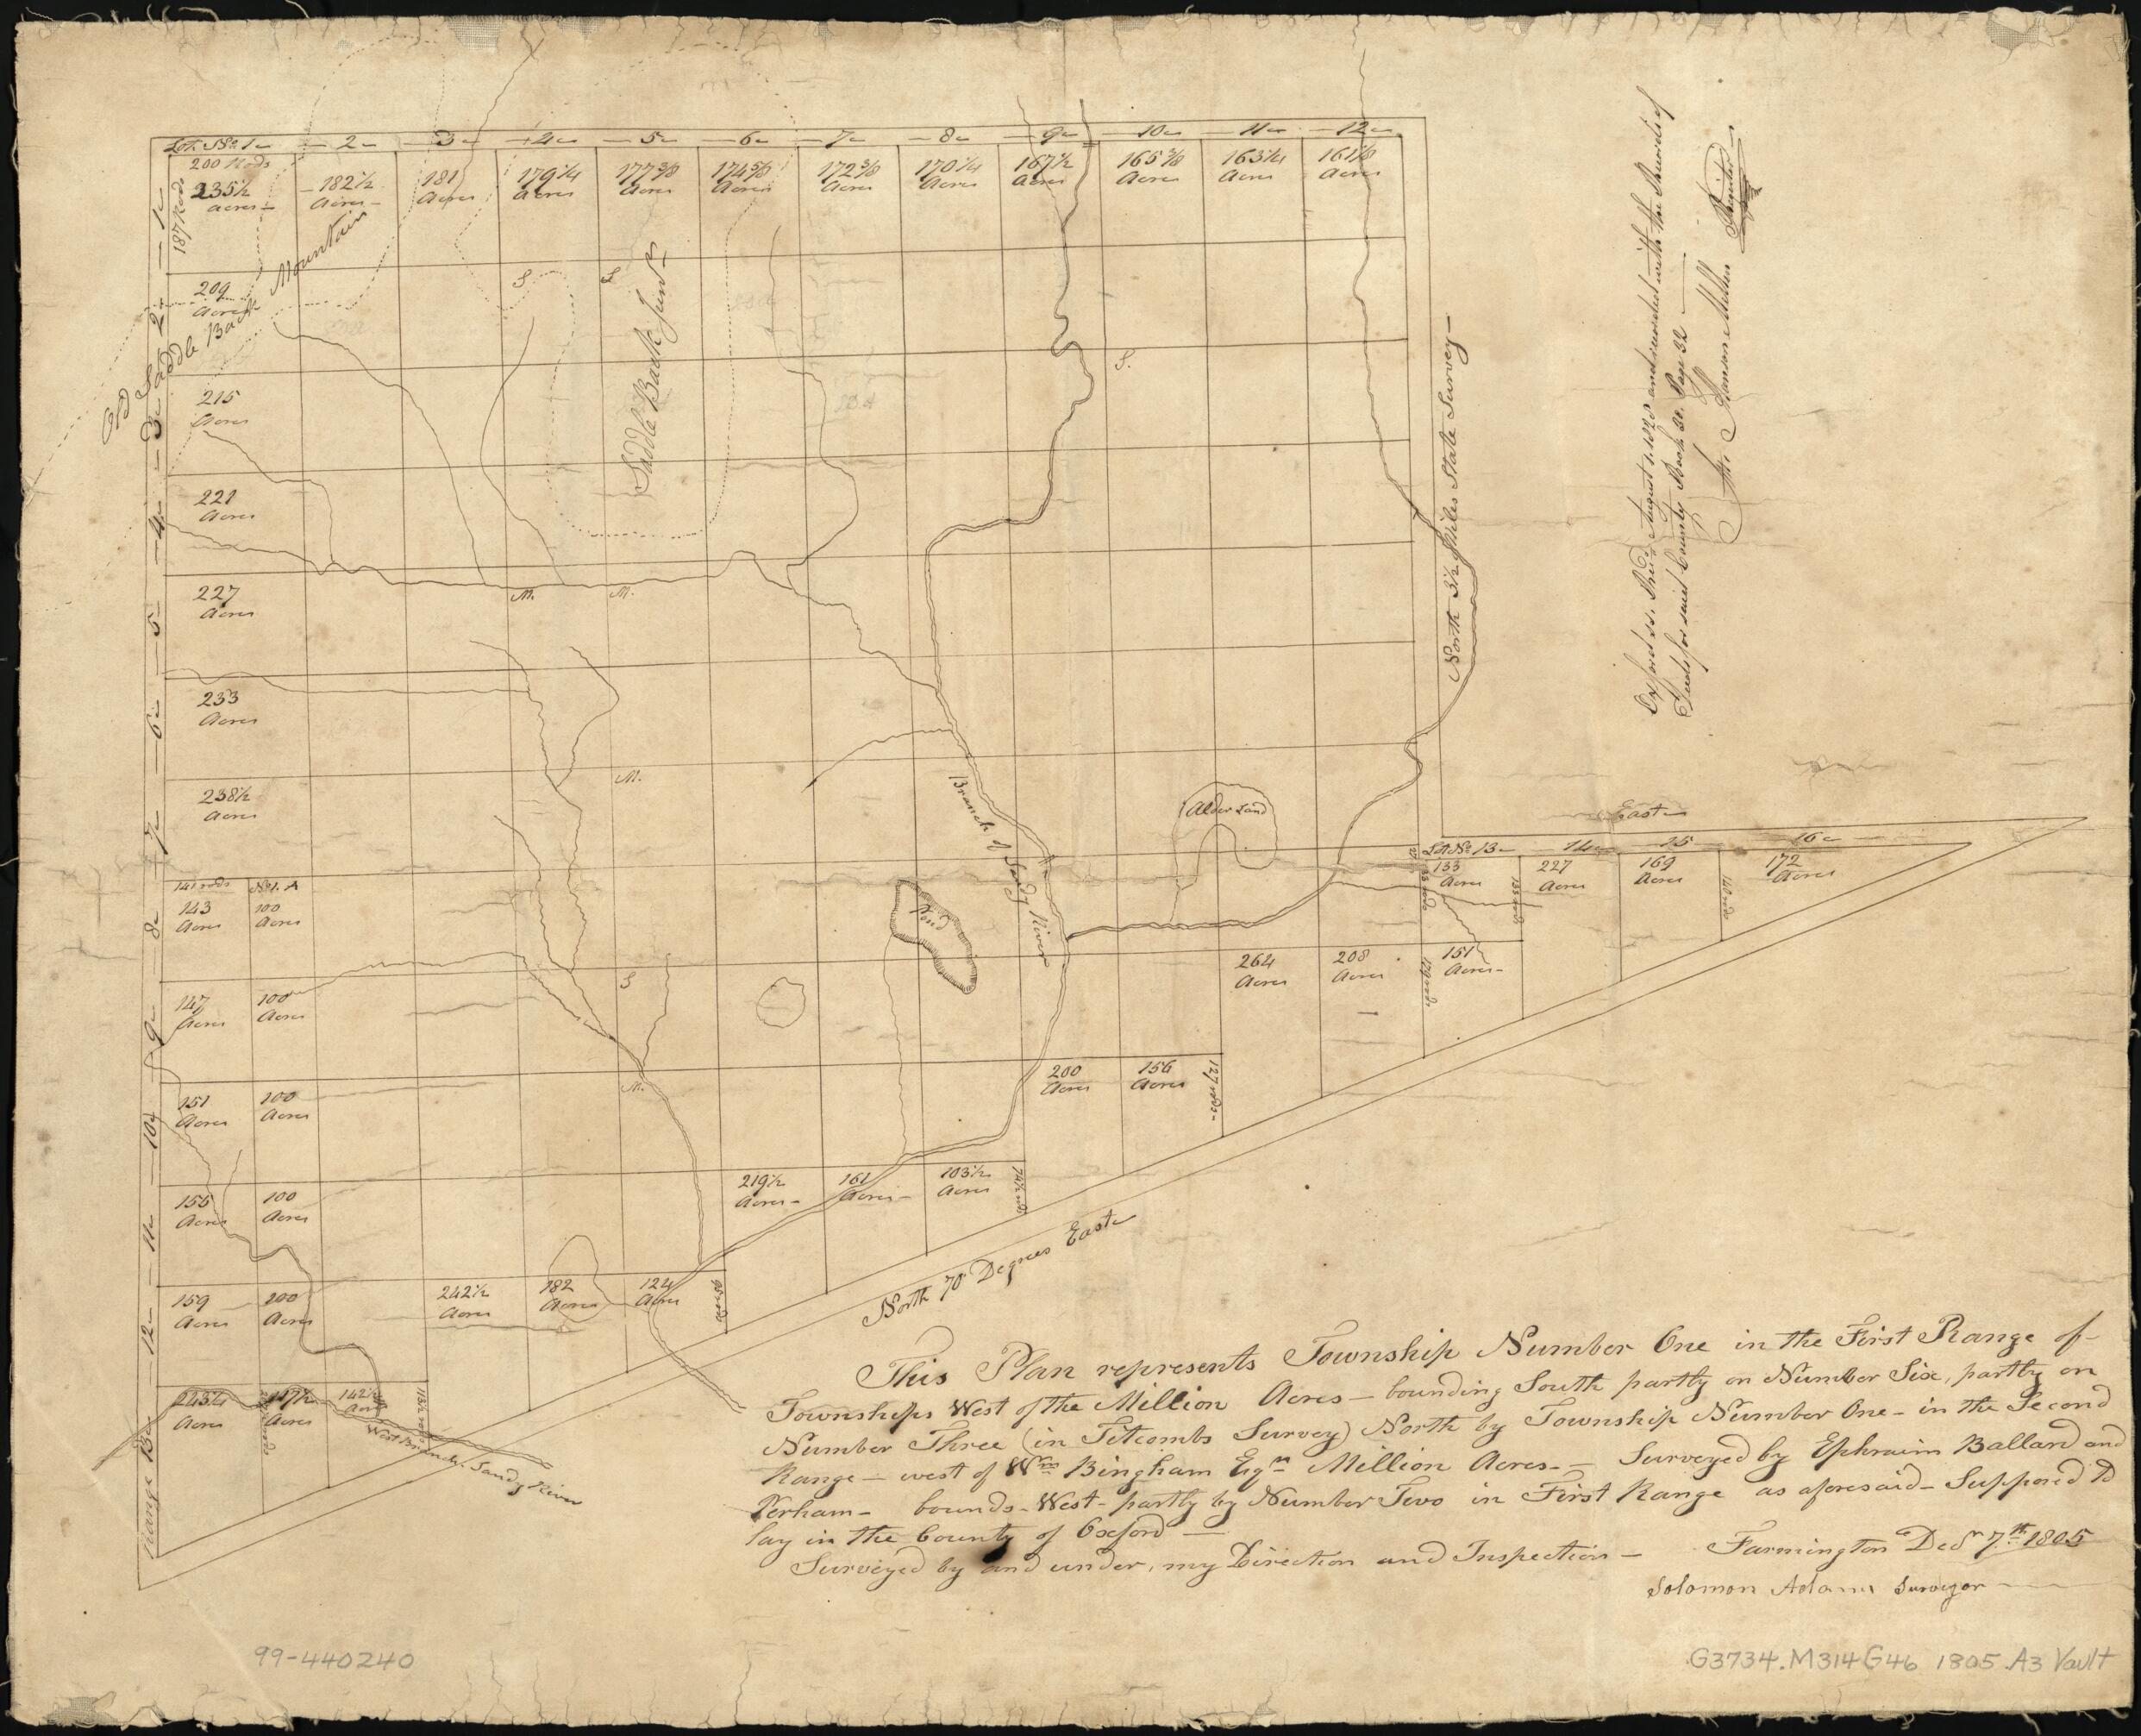 Lot. No. 1 - 2 - 3 - 4 - 5 - 6 - 7 - 8 - 9 - 10 - 11 - 12
200 Rods
235½ Acres
182½ Acres
181 Acres
179¼ Acres
177⅜ Acres
174⅝ Acres
172⅜ Acres
170¼ Acres
167½ Acres
165⅜ Acres
163¼ Acres
161⅛ Acres
187 Rods
1
2
3
4
5
6
7
8
9
10
11
12
Range 13
209 Acres
Old Saddle Back Mountain
Saddle Back Junr
S
S
S.
215 Acres
221 Acres
227 Acres
M.
M.
233 Acres
238½ Acres
M.
141 rods
No. 1. A
143 Acres
100 Acres
147 Acres
100 Acres
S
151 Acres
100 Acres
M.
155 Acres
100 Acres
159 Acres
100 Acres
242½ Acres
182 Acres
124 Acres
243¼ Acres
147½ Acres
142½ Acres
West Branch Sandy River
219½ Acres
161 Acres
103½ Acres
74½ rods
200 Acres
156 Acres
127 rods
264 Acres
208 Acres
151 Acres
Branch of Sandy River
Pond
Alder Land
North 3½ Miles State Survey
East
Lot No. 13 - 14 - 15 - 16
133 Acres
227 Acres
169 Acres
172 Acres
140 rods
North 70 Degrees East
Oxford ss. Recd. August 1. 1828 and recorded with the Records of
Deeds for said County Book 30. Page 32
At. Alanson Mellen Register
This Plan represents Township Number One in the First Range of
Townships West of the Million Acres - bounding South partly on Number Six, partly on
Number Three (in Titcombs Survey) North by Township Number One - in the Second
Range - west of Wm. Bingham Eqr. Million Acres. - Surveyed by Ephraim Ballard and
Perham - bounds - West - partly by Number Two in First Range as aforesaid - Supposed to
lay in the County of Oxford -
Surveyed by and under, my Direction and Inspection - Farmington Decr 7th 1805
Solomon Adams Surveyor
99-440240
G3734.M314G46 1805 .A3 Vault